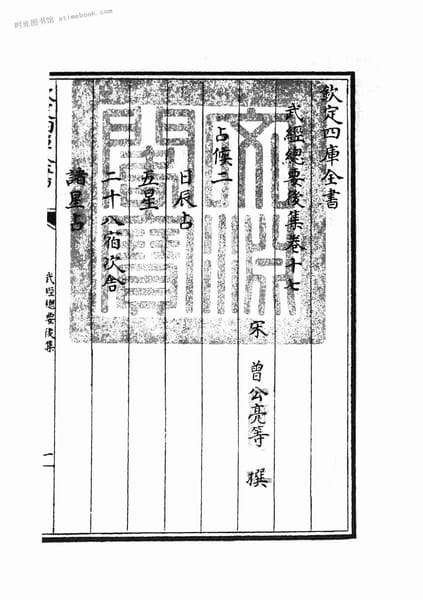 时光图书馆 atimebook.com
欽定四庫全書
武經總要後集卷十七
宋 曾公亮等 撰
占候二
日辰占
五星
二十八宿次舍
諸星占
武經總要後集
一